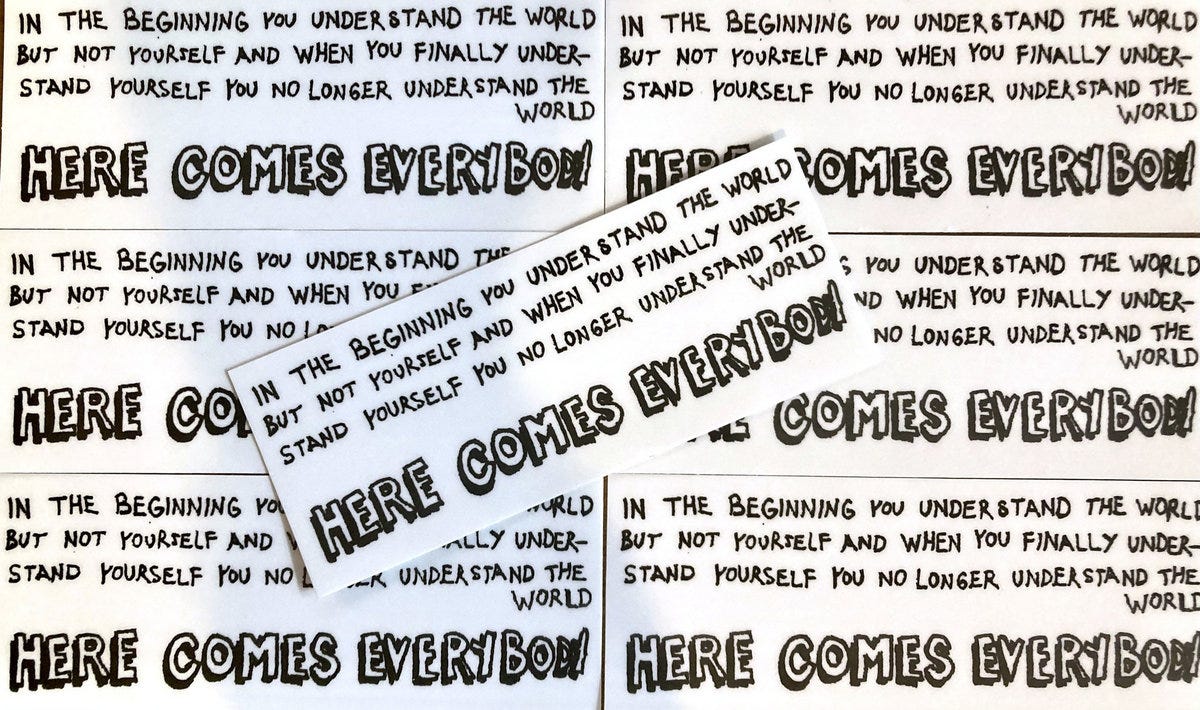 IN THE BEGINNING YOU UNDERSTAND THE WORLD
BUT NOT YOURSELF AND WHEN YOU FINALLY UNDER-
STAND YOURSELF YOU NO LONGER UNDERSTAND THE
WORLD
HERE COMES EVERYBODY
IN THE BEGINNING YOU UNDERSTAND THE WORLD
BUT NOT YOURSELF AND WHEN YOU FINALLY UNDER-
STAND YOURSELF YOU NO LONGER UNDERSTAND THE
WORLD
HERE COMES EVERYBODY
IN THE BEGINNING YOU UNDERSTAND THE
BUT NOT YOURSELF AND WHEN YOU
STAND YOURSELF YOU NO
HERE
IN THE BEGINNING YOU UNDERSTAND THE WORLD
BUT NOT YOURSELF AND WHEN YOU FINALLY UNDER-
STAND YOURSELF YOU NO LONGER UNDERSTAND THE
WORLD
HERE COMES EVERYBODY
YOU UNDERSTAND THE WORLD
WHEN YOU FINALLY UNDER-
NO LONGER UNDERSTAND THE
WORLD
COMES EVERYBODY
IN THE BEGINNING YOU WORLD
BUT NOT YOURSELF AND UNDER-
STAND YOURSELF YOU NO UNDERSTAND THE
WORLD
HERE COMES EVERYBODY
IN THE BEGINNING YOU UNDERSTAND THE WORLD
BUT NOT YOURSELF AND WHEN YOU FINALLY UNDER-
STAND YOURSELF YOU NO LONGER UNDERSTAND THE
WORLD
HERE COMES EVERYBODY